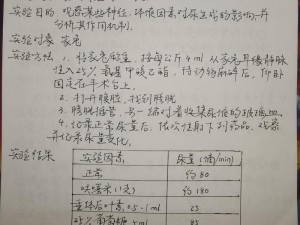 实验目的 观察某些神经、体液因素对尿生成的影响，并
分析其作用机制。
实验对象 家兔
实验方法 1. 将家兔称重，按每公斤4ml从家兔耳缘静脉
注入25%氨基甲酸乙酯，待动物麻醉后，仰卧
固定在手术台上。
2. 打开腹腔，找到膀胱
3. 膀胱插管，另一端对着收集尿液的玻璃皿
4. 记录正常尿量后，依次注射下列药品，观察
并记录尿量变化。
实验结果
实验因素 尿量（滴/min）
正常 约80
呋噻米（1支） 约180
垂体后叶素0.5-1ml 25
25%葡萄糖 5ml 85